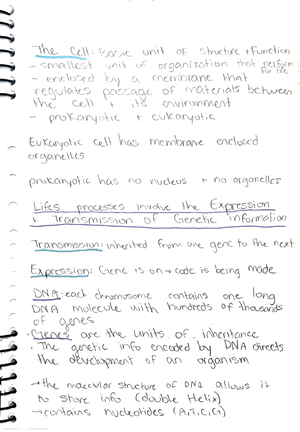 The Cell: Basic unit of structure + function
- smallest unit of organization that perform for life
- enclosed by a membrane that
regulates passage of materials between
the cell + its environment
- prokaryotic + eukaryotic
Eukaryotic cell has membrane enclosed
organelles
prokaryotic has no nucleus + no organelles
Lifes processes involve the Expression
+ Transmission of Genetic information
Transmission: inherited from one gene to the next
Expression: Gene is on → code is being made
DNA: each chromosome contains one long
DNA molecule with hundreds of thousands
of genes
· Genes are the units of inheritance
· The genetic info encoded by DNA directs
the development of an organism
→ the molecular structure of DNA allows it
to store info (double Helix)
→ contains nucleotides (A,T,C,G)